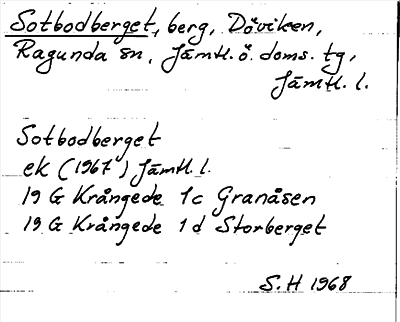 Sotbodberget, berg, Döviken,
Ragunda sn, Jämtl. ö. doms. tg,
Jämtl. l.
Sotbodberget
ek (1967) Jämtl. l.
19 G Krångede 1c Granåsen
19 G Krångede 1d Storberget
S.H 1968